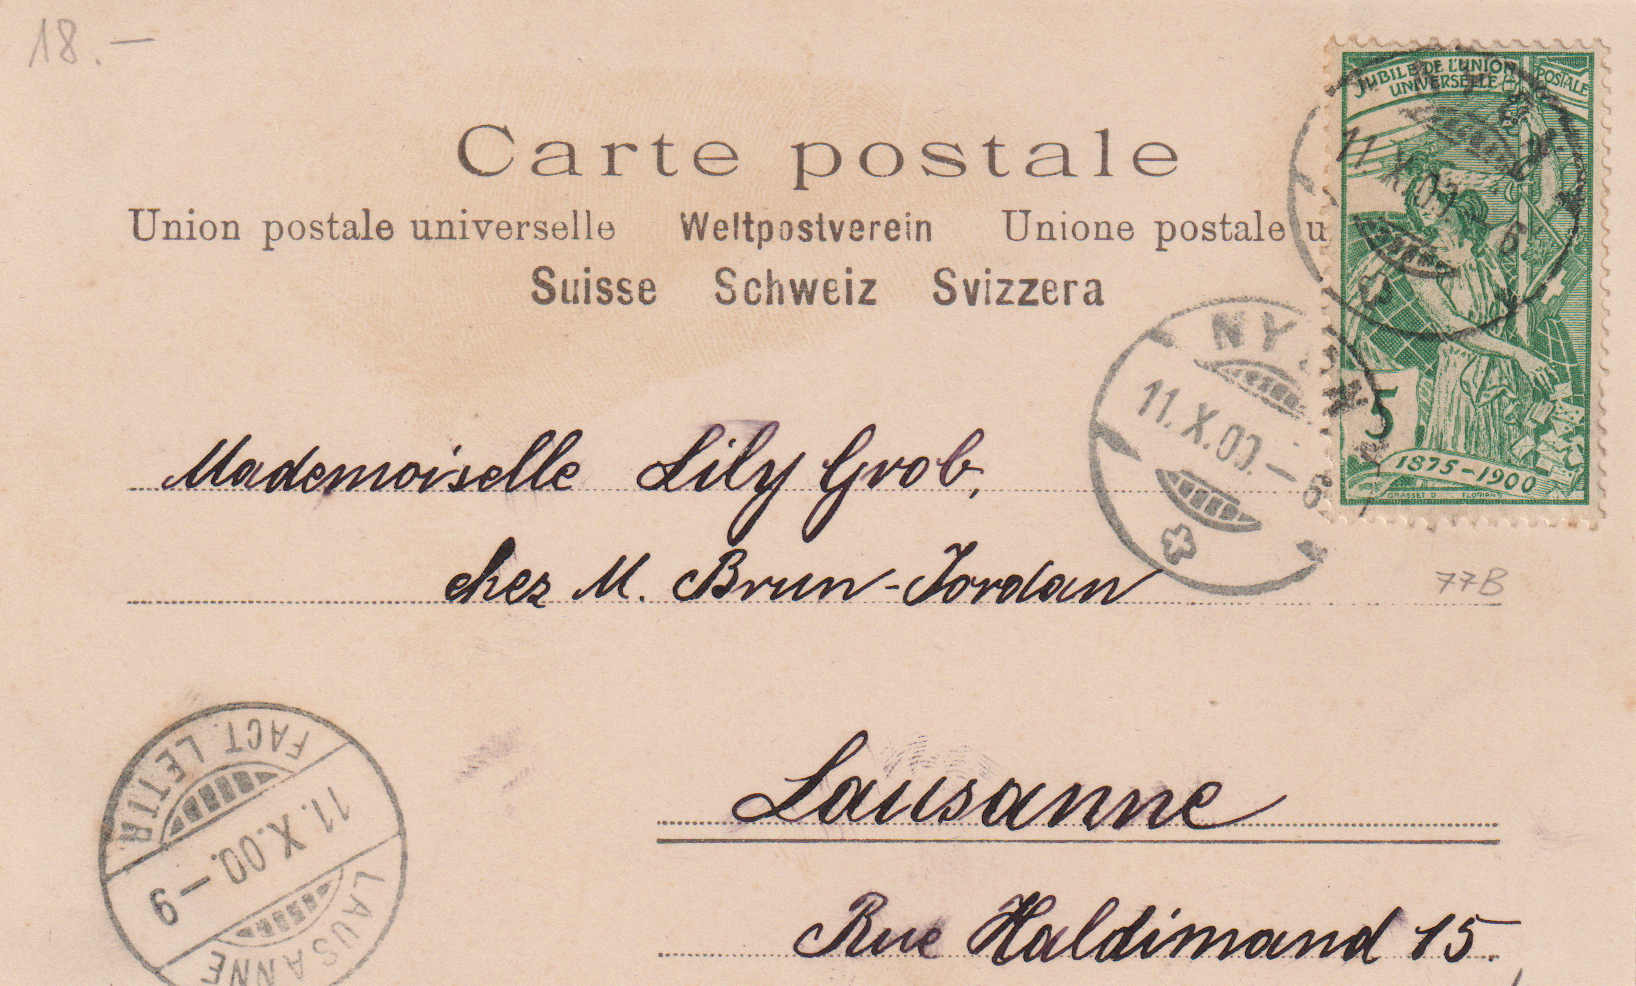 18.—
JUBILÉ DE L'UNION POSTALE
UNIVERSELLE
Carte postale
Union postale universelle Weltpostverein Unione postale u
Suisse Schweiz Svizzera
NYON
11.X.00.—6
11.X.00.—6
5
1875-1900
GRASSET D. FLORIAN
Mademoiselle Lily Grob,
chez M. Brun-Jordan
77B
Lausanne
Rue Haldimand 15.
LAUSANNE
11.X.00.—9
FACT. LETTR.